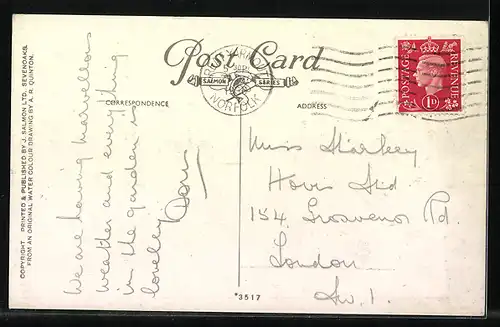 Post Card
SALMON SERIES
NORFOLK
CORRESPONDENCE
ADDRESS
POSTAGE
REVENUE
1D
COPYRIGHT. PRINTED & PUBLISHED BY J. SALMON LTD. SEVENOAKS.
FROM AN ORIGINAL WATER COLOUR DRAWING BY A. R. QUINTON.
We are having marvellous
weather and everything
in the garden is
lovelly
Miss Starkey
Hovis Ltd
154 Grosvenor Rd.
London
S.W.1.
*3517